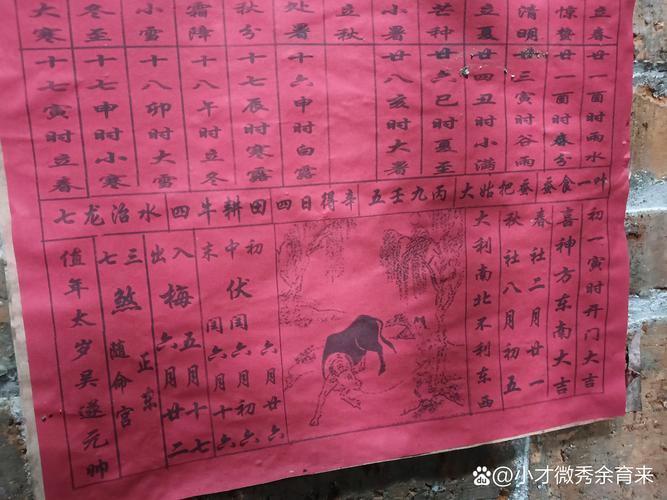 立春
惊蛰
清明
立夏
芒种
小暑
立秋
处暑
秋分
霜降
小雪
冬至
大寒
廿一酉时雨水
廿一酉时春分
廿三寅时谷雨
廿四丑时小满
廿六巳时夏至
廿八亥时大暑
十六申时白露
十七辰时寒露
十八午时立冬
十八卯时大雪
十七申时小寒
十七寅时立春
七龙治水 四牛耕田 四日得辛 五壬九丙 大姑把蚕 蚕食一叶
初一寅时开门大吉
喜神方东南大吉
春社二月廿一
秋社八月初五
大利南北不利东西
初中末
伏
六月廿六
闰六月初六
闰六月十六
入出
梅
五月十七
六月廿二
三七
煞
正东
随命宫
值年太岁吴遂元帅
@小才微秀余育来